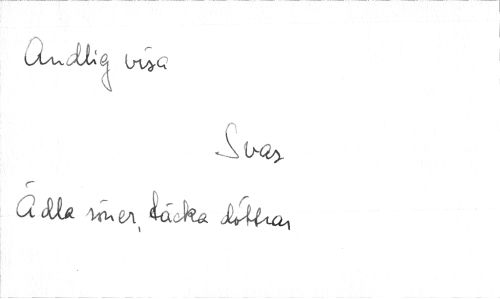 Andlig visa
Svar
Ädla söner, täcka döttrar